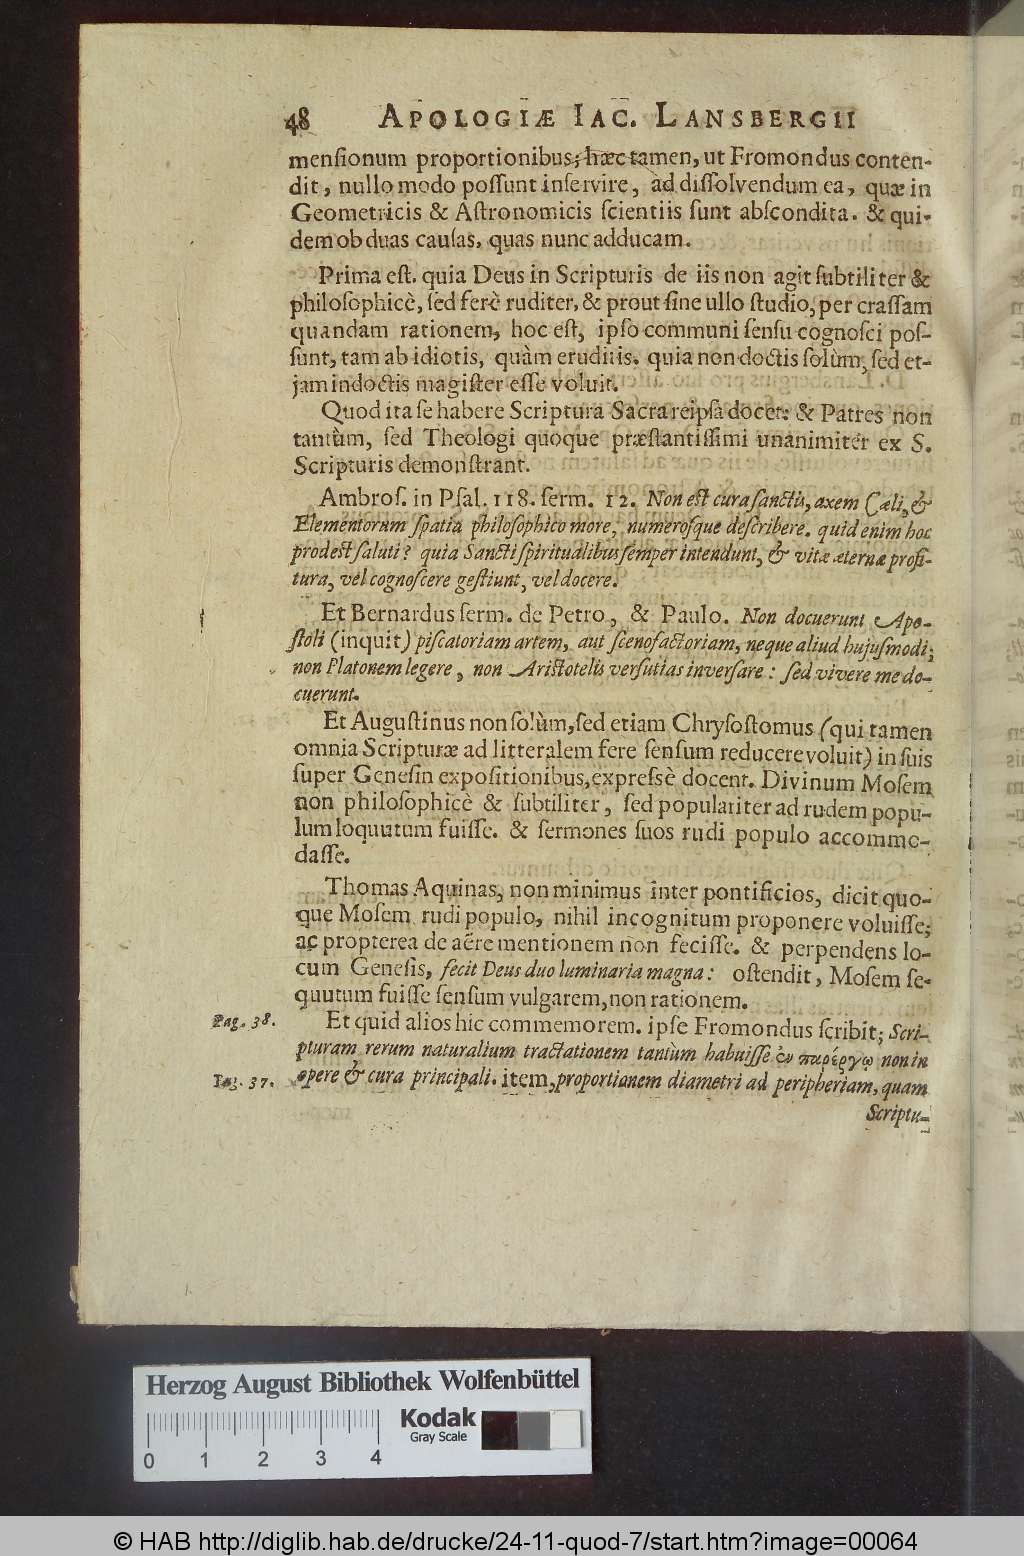 48 APOLOGIÆ IAC. LANSBERGII
menſionum proportionibus; hæc tamen, ut Fromondus conten-
dit, nullo modo poſſunt inſervire, àd diſſolvendum ea, quæ in
Geometricis & Aſtronomicis ſcientiis ſunt abſcondita. & qui-
dem ob duas cauſas, quas nunc adducam.
Prima eſt. quia Deus in Scripturis de iis non agit ſubtiliter &
philoſophicè, ſed ferè ruditer, & prout ſine ullo ſtudio, per craſſam
quandam rationem, hoc eſt, ipſo communi ſenſu cognoſci poſ-
ſunt, tam ab idiotis, quàm eruditis. quia non doctis ſolùm, ſed et-
jam indoctis magiſter eſſe voluit.
Quod ita ſe habere Scriptura Sacra reipſa docet: & Patres non
tantùm, ſed Theologi quoque præſtantiſſimi unanimiter ex S.
Scripturis demonſtrant.
Ambroſ. in Pſal. 118. ſerm. 12. Non eſt cura ſanctis, axem Cæli, &
Elementorum ſpatia philoſophico more, numeroſque deſcribere. quid enim hoc
prodeſt ſaluti? quia Sancti ſpiritualibus ſemper intendunt, & vitæ æternæ profi-
tura, vel cognoſcere geſtiunt, vel docere.
Et Bernardus ſerm. de Petro, & Paulo. Non docuerunt Apo-
ſtoli (inquit) piſcatoriam artem, aut ſcenofactoriam, neque aliud hujuſmodi;
non Platonem legere, non Ariſtotelis verſutias inverſare: ſed vivere me do-
cuerunt.
Et Auguſtinus non ſolùm, ſed etiam Chryſoſtomus (qui tamen
omnia Scripturæ ad litteralem fere ſenſum reducere voluit) in ſuis
ſuper Geneſin expoſitionibus, expreſsè docent. Divinum Moſem
non philoſophicè & ſubtiliter, ſed populariter ad rudem popu-
lum loquutum fuiſſe. & ſermones ſuos rudi populo accommo-
daſſe.
Thomas Aquinas, non minimus inter pontificios, dicit quo-
que Moſem rudi populo, nihil incognitum proponere voluiſſe;
ac propterea de aëre mentionem non feciſſe. & perpendens lo-
cum Geneſis, fecit Deus duo luminaria magna: oſtendit, Moſem ſe-
quutum fuiſſe ſenſum vulgarem, non rationem.
Pag. 38. Et quid alios hic commemorem. ipſe Fromondus ſcribit; Scri-
pturam rerum naturalium tractationem tantùm habuiſſe ἐν παρέργῳ non in
Pag. 37. opere & cura principali. item, proportionem diametri ad peripheriam, quam
Scriptu-
Herzog August Bibliothek Wolfenbüttel
Kodak
Gray Scale
0 1 2 3 4
© HAB http://diglib.hab.de/drucke/24-11-quod-7/start.htm?image=00064